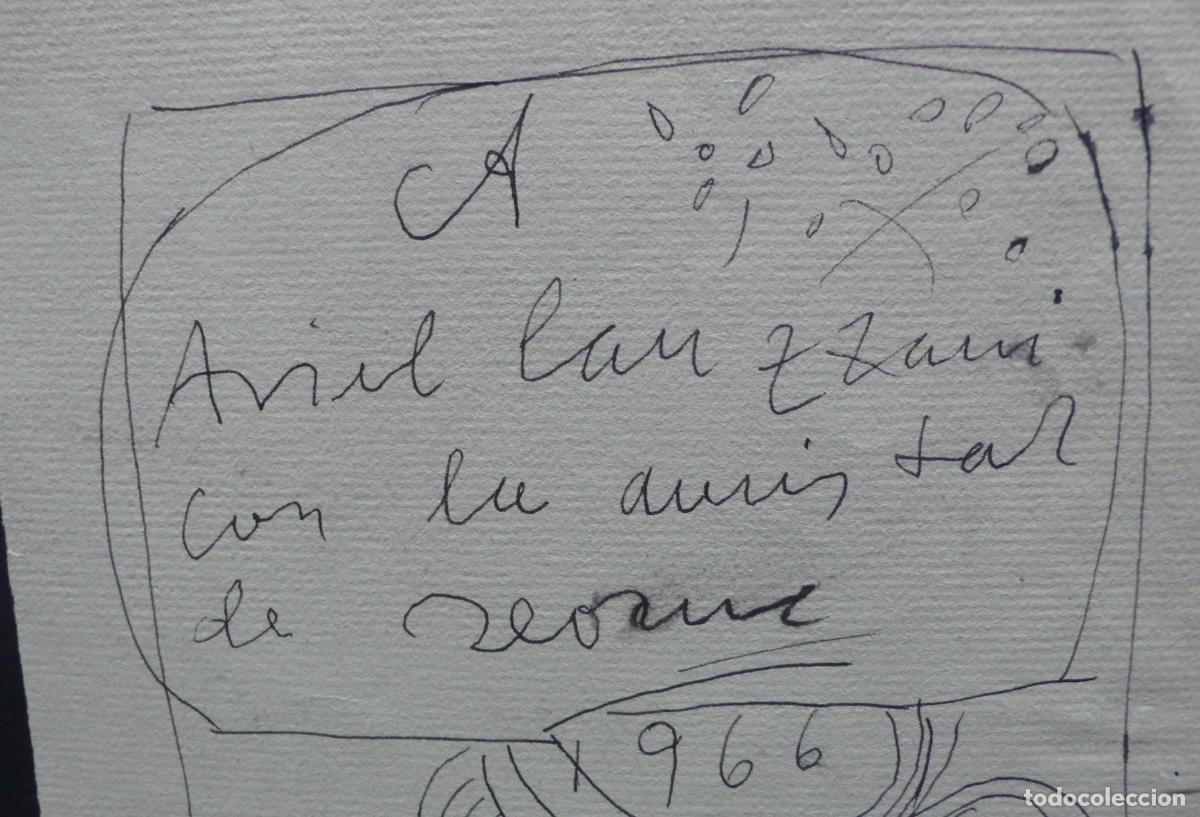 A
Ariel Lanzzani
con la amistad
de
1966
todocoleccion